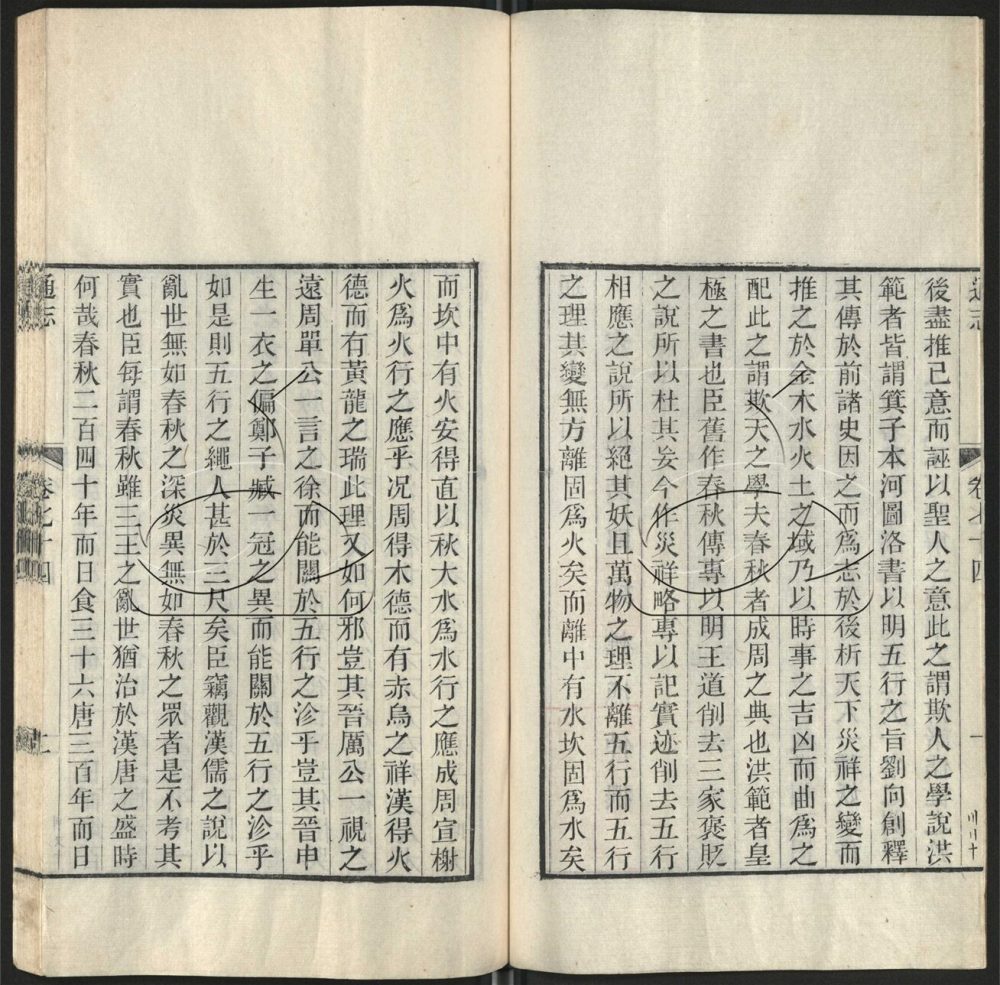 後盡推已意而誣以聖人之意此之謂欺人之學說洪
範者皆謂箕子本河圖洛書以明五行之旨劉向創釋
其傳於前諸史因之而為志於後析天下災祥之變而
推之於金木水火土之域乃以時事之吉凶而曲為之
配此之謂欺天之學夫春秋者成周之典也洪範者皇
極之書也臣舊作春秋傳專以明王道削去三家褒貶
之說所以杜其妄今作災祥略專以記實迹削去五行
相應之說所以絕其妖且萬物之理不離五行而五行
之理其變無方離固為火矣而離中有水坎固為水矣
而坎中有火安得直以秋大水為水行之應成周宣榭
火為火行之應乎况周得木德而有赤烏之祥漢得火
德而有黃龍之瑞此理又如何邪豈其晉厲公一視之
遠周單公一言之徐而能關於五行之沴乎豈其晉申
生一衣之偏鄭子臧一冠之異而能關於五行之沴乎
如是則五行之繩人甚於三尺矣臣竊觀漢儒之說以
亂世無如春秋之深災異無如春秋之眾者是不考其
實也臣每謂春秋雖三王之亂世猶治於漢唐之盛時
何哉春秋二百四十年而日食三十六唐三百年而日
通志
卷七十四